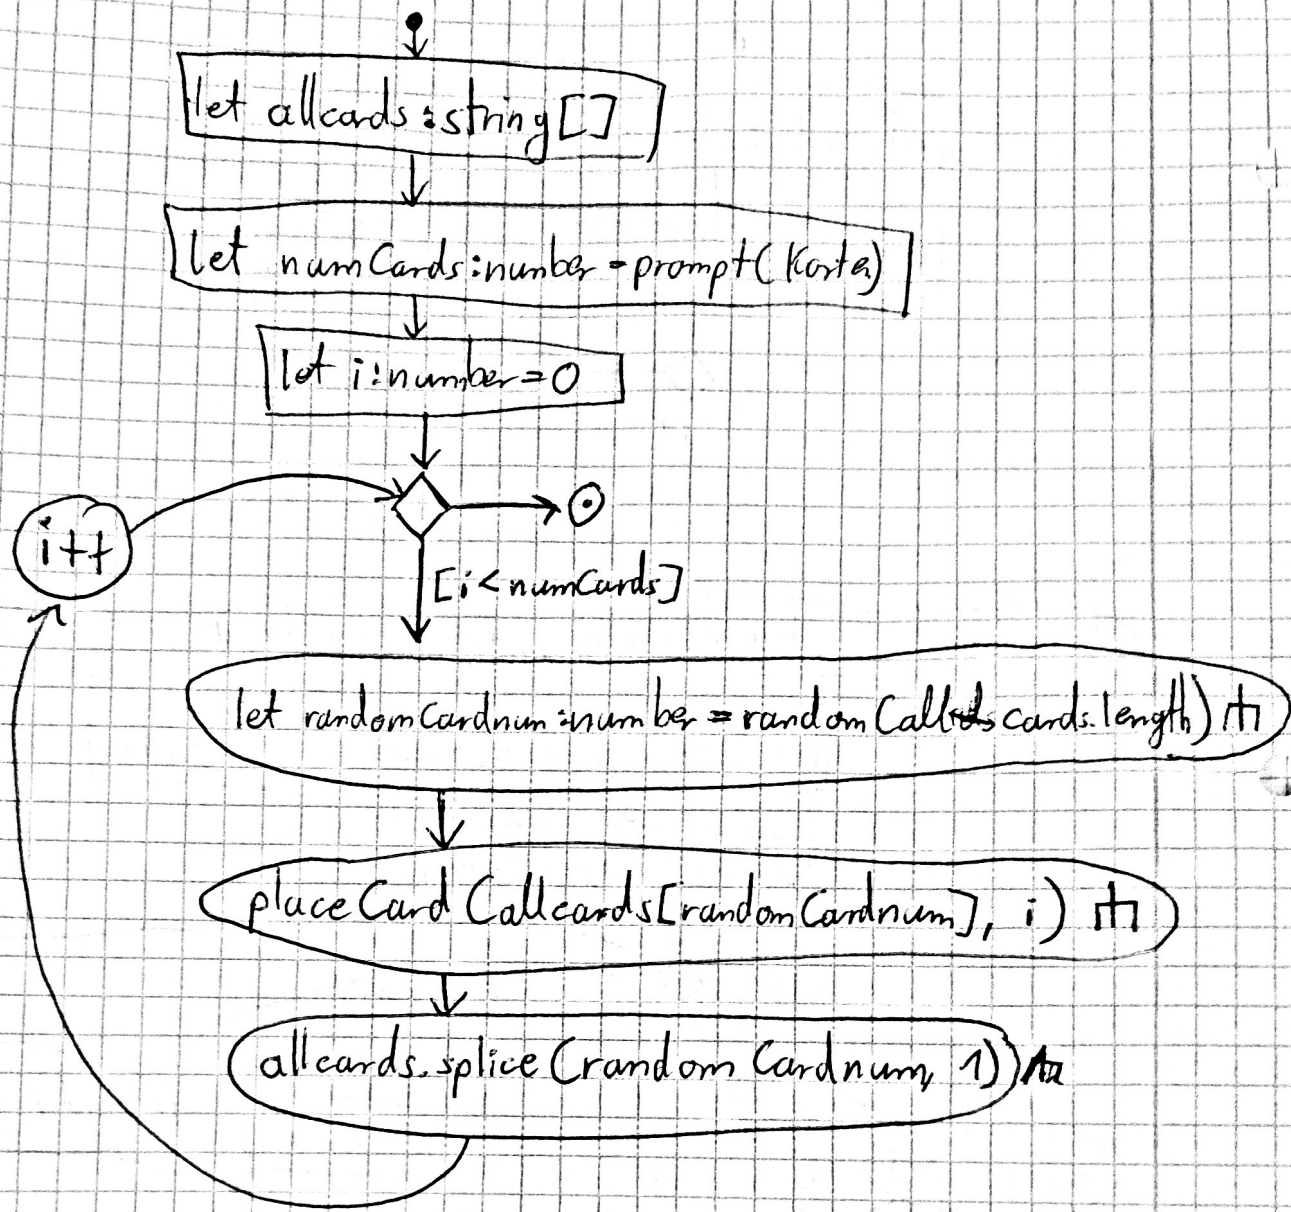 let allcards:string[]
let numCards:number=prompt(Karten)
let i:number=0
i++
[i<numCards]
let randomCardnum:number=random(allcards.length)
placeCard(allcards[randomCardnum], i)
allcards.splice(randomCardnum, 1)